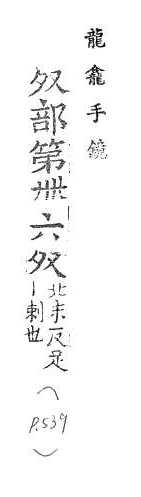 龍龕手鏡
癶部第卌六癶北末反足丨剌也（P.539）